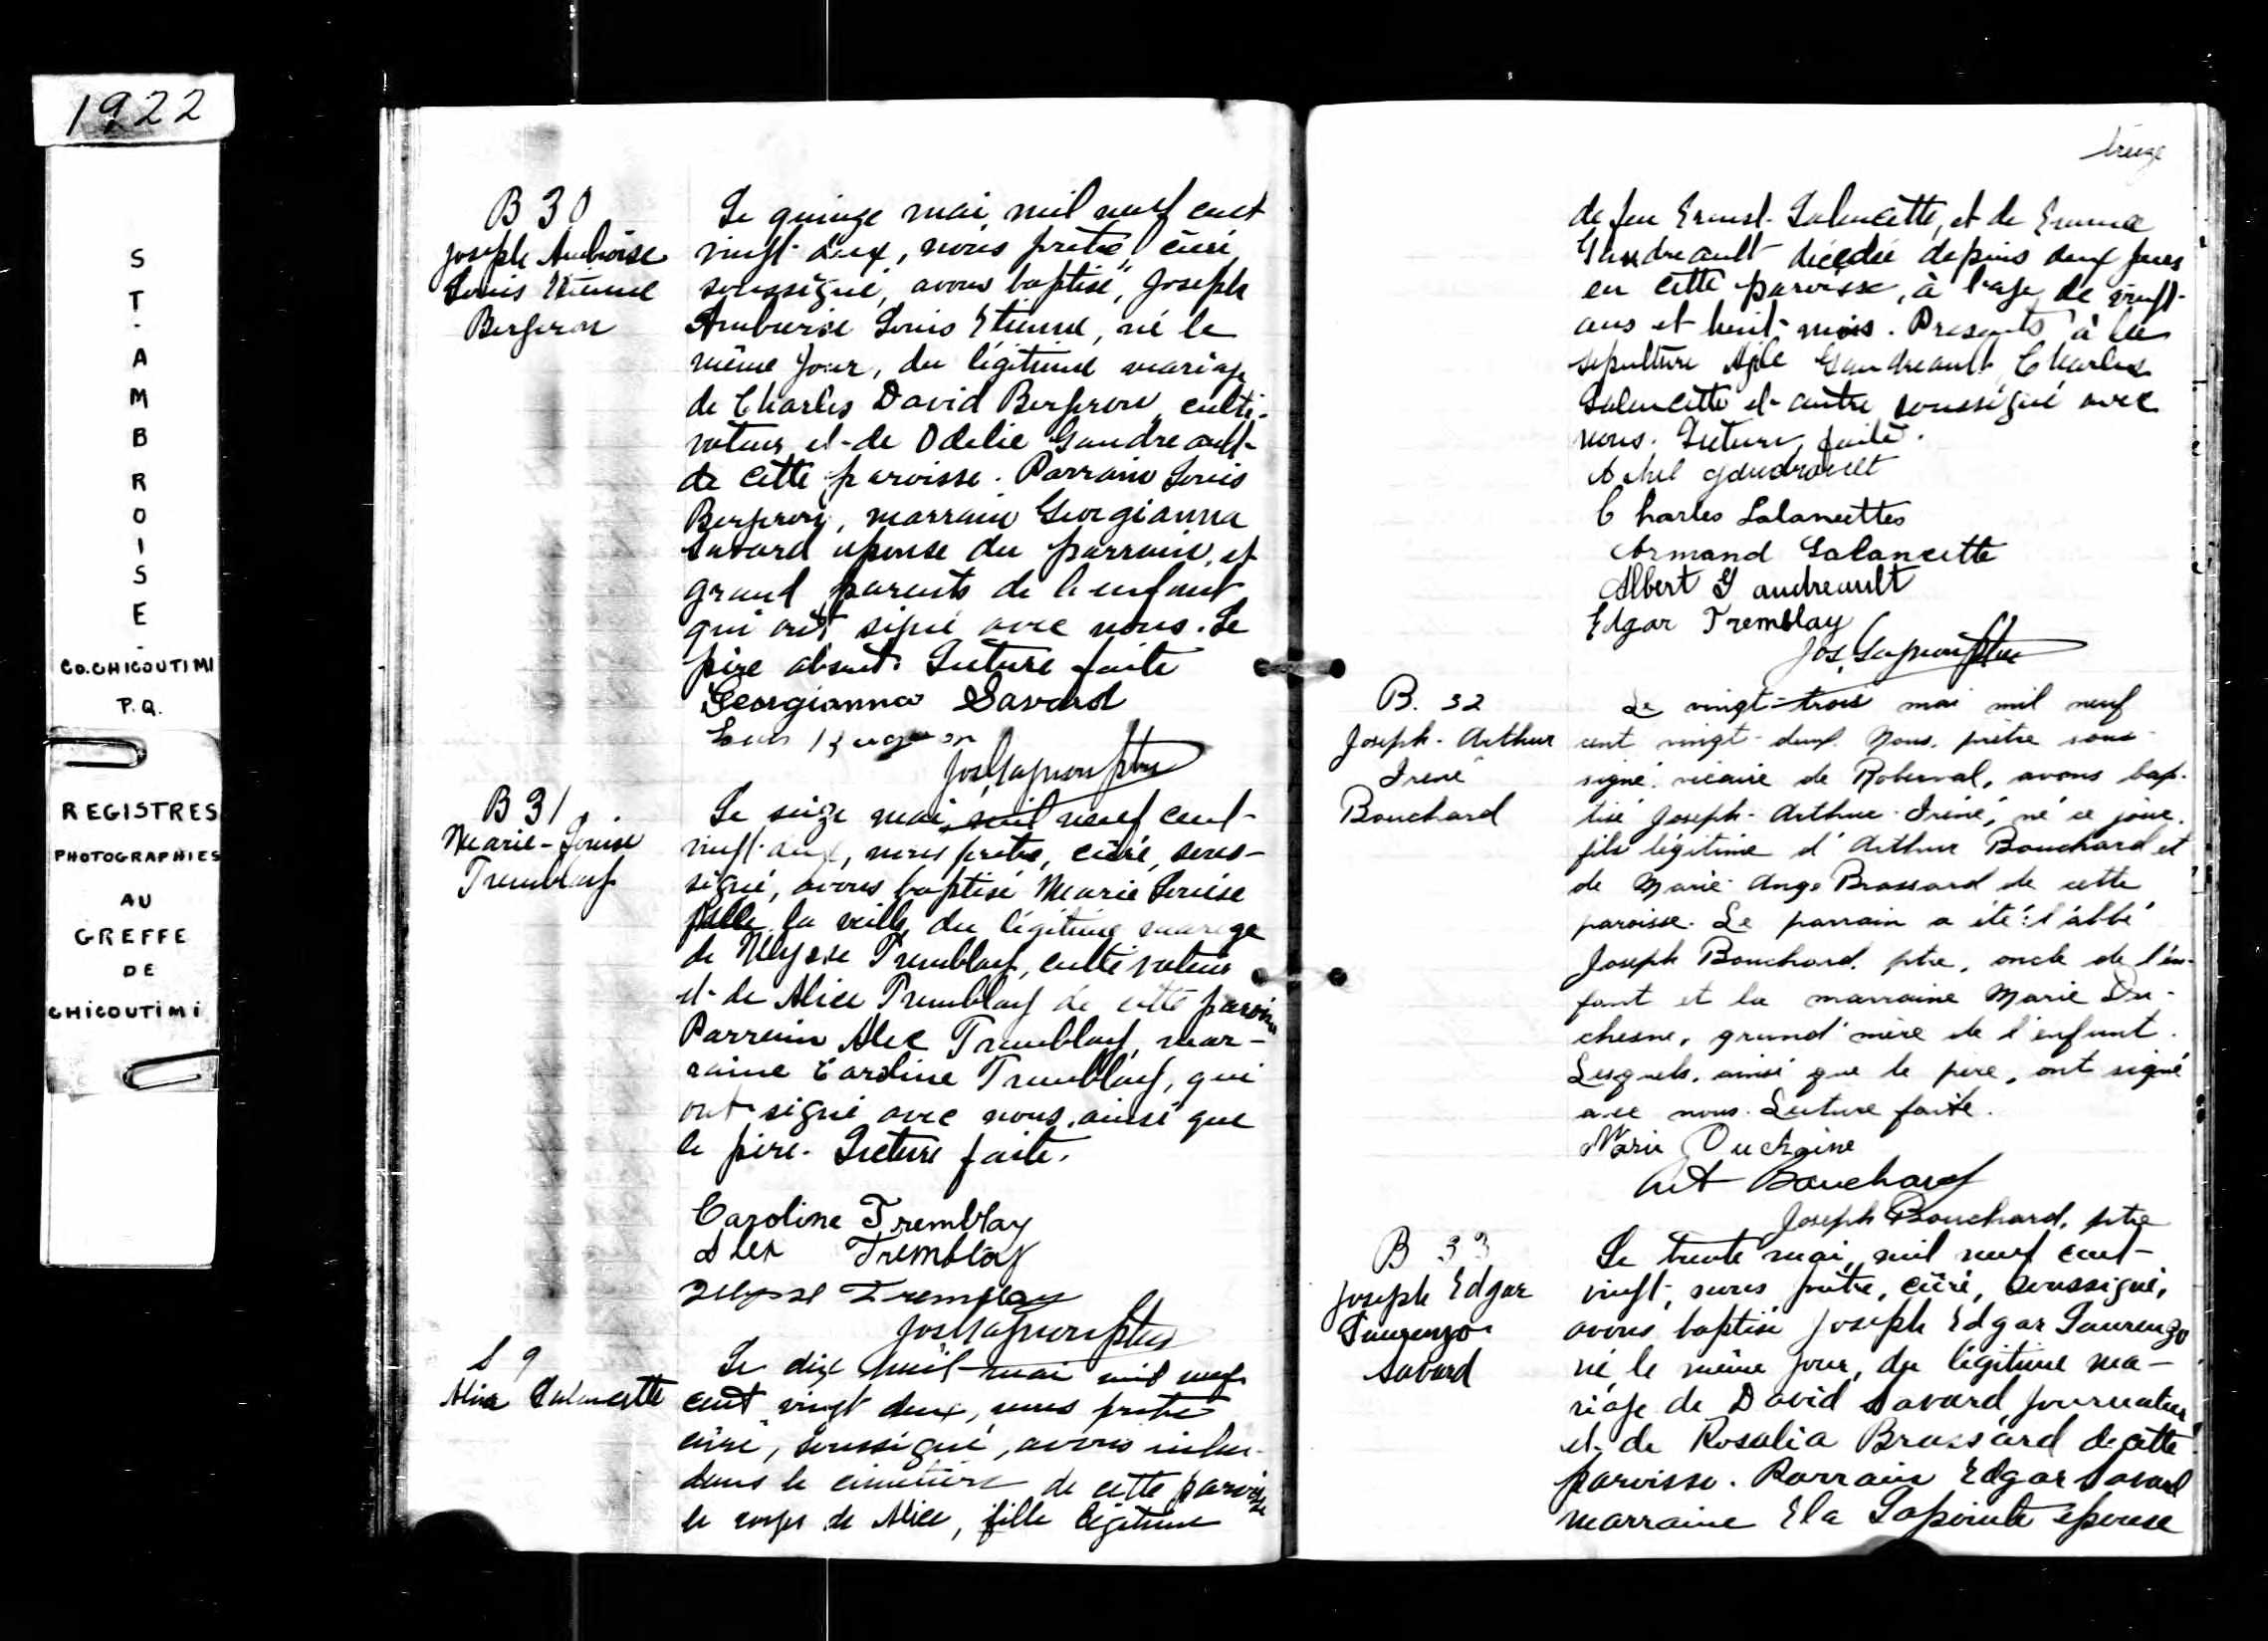 1922
ST. AMBROISE.
CO. CHICOUTIMI
P.Q.
REGISTRES
PHOTOGRAPHIÉS
AU
GREFFE
DE
CHICOUTIMI
B 30
Joseph Ambroise
Louis Etienne
Bergeron
Le quinze mai mil neuf cent
vingt-deux, nous prêtre, curé,
soussigné, avons baptisé, Joseph
Ambroise Louis Etienne, né le
même jour, du légitime mariage
de Charles David Bergeron, culti-
vateur et de Odelie Gaudreault
de cette paroisse. Parrain Louis
Bergeron, marraine Georgianna
Savard épouse du parrain, et
grand parents de l'enfant
qui ont signé avec nous. Le
père absent. Lecture faite
Georgianna Savard
Louis Bergeron
Jos. Gagnon ptre
B 31
Marie-Louise
Tremblay
Le seize mai, mil neuf cent-
vingt-deux, nous prêtre, curé, sous-
signé, avons baptisé Marie Louise
la veille, du légitime mariage
de Ulysse Tremblay, cultivateur
et de Alice Tremblay de cette paroisse
Parrain Alex Tremblay, mar-
raine Caroline Tremblay, qui
ont signé avec nous, ainsi que
le père. Lecture faite.
Caroline Tremblay
Alex Tremblay
Ulysse Tremblay
Jos. Gagnon ptre
S 9
Alice Lalancette
Le dix huit mai mil neuf
cent vingt deux, nous prêtre
curé, soussigné, avons inhu-
dans le cimetière de cette paroisse
le corps de Alice, fille légitime
treize
de feu Ernest Lalancette, et de Emma
Gaudreault décédée depuis deux jours
en cette paroisse, à l'age de vingt-
ans et huit mois. Presents à la
sepulture Gaudreault, Charles
Lalancette et autre soussigné avec
nous. Lecture faite.
Achel gaudreault
Charles Lalancettes
Armand Lalancette
Albert Gaudreault
Edgar Tremblay
Jos. Gagnon ptre
B. 32
Joseph-Arthur
Irené
Bouchard
Le vingt-trois mai mil neuf
cent vingt-deux. Nous, prêtre sous-
signé vicaire de Roberval, avons bap-
tisé Joseph-Arthur-Iréné, né ce jour,
fils légitime d'Arthur Bouchard et
de Marie-Ange Brassard de cette
paroisse. Le parrain a été: l'abbé
Joseph Bouchard, ptre, oncle de l'en-
fant et la marraine Marie Du-
chesne, grand'mère de l'enfant.
Lesquels, ainsi que le père, ont signé
avec nous. Lecture faite.
Marie Duchaine
Art Bouchard
Joseph Bouchard, ptre
B 33
Joseph Edgar
Laurenzo
Savard
Le trente mai, mil neuf cent-
vingt, nous prêtre, curé, soussigné,
avons baptisé Joseph Edgar Laurenzo
né le même jour, du légitime ma-
riage de David Savard, journalier
et de Rosalia Brassard de cette
paroisse. Parrain Edgar Savard
marraine Ela Lapointe épouse